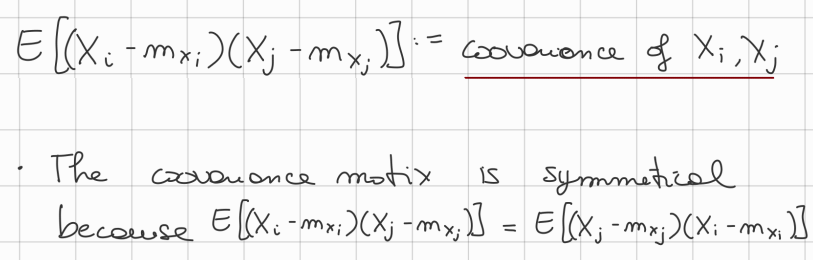 E[(X_i - m_{x_i})(X_j - m_{x_j})] := covariance of X_i, X_j
· The covariance matrix is symmetrical
because E[(X_i - m_{x_i})(X_j - m_{x_j})] = E[(X_j - m_{x_j})(X_i - m_{x_i})]